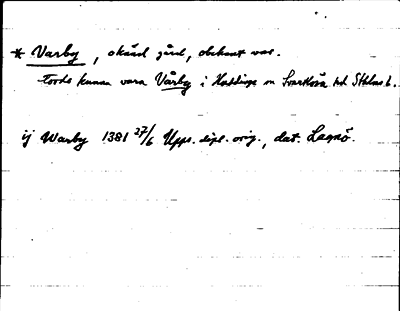 * Varby, okänd gård, obekant var.
torde kunna vara Vårby i Huddinge sn Svartlösa hd Sthlms l.
ij Warby 1381 27/6 Upps. dipl. orig., dat. Lagnö.